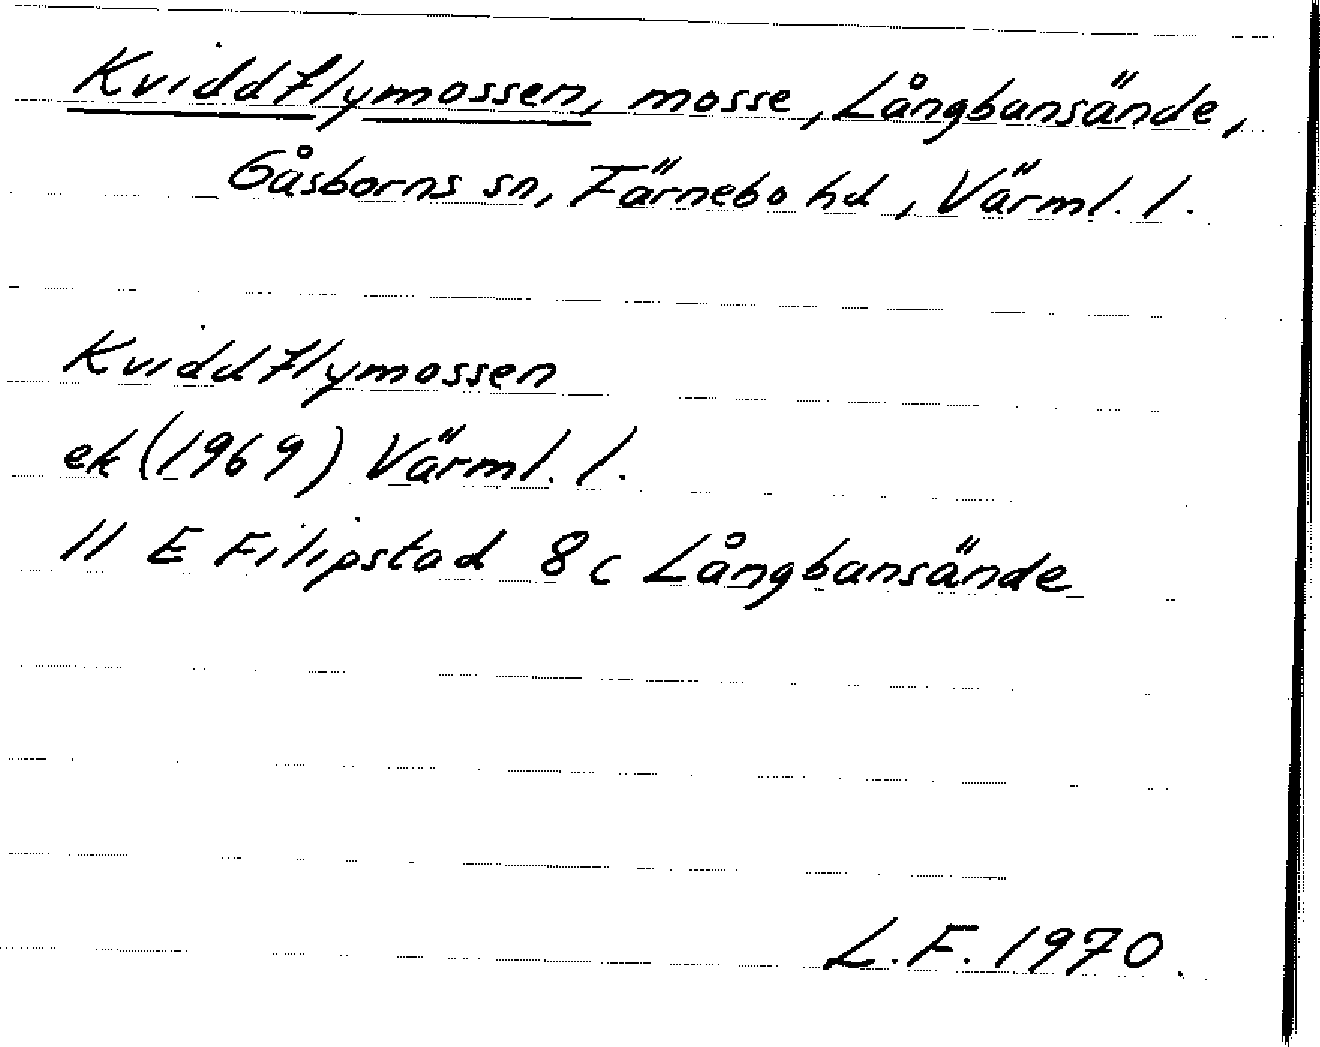 Kviddflymossen, mosse, Långbansände,
Gåsborns sn, Färnebo hd, Värml. l.
Kviddflymossen
ek (1969) Värml. l.
11 E Filipstad 8c Långbansände
L.F. 1970.